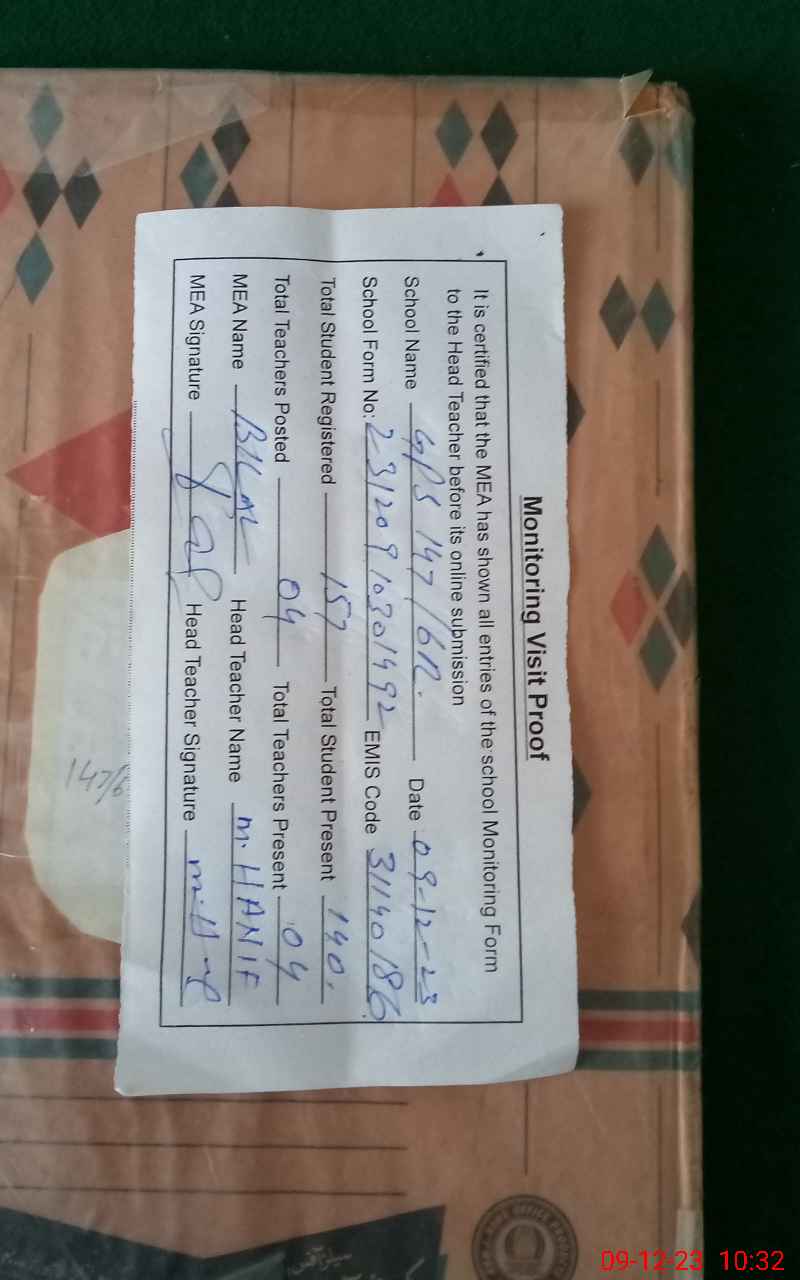 Monitoring Visit Proof
It is certified that the MEA has shown all entries of the school Monitoring Form
to the Head Teacher before its online submission
School Name GPS 147/6R. Date 09-12-23
School Form No: 23120910301492 EMIS Code 31140186
Total Student Registered 157 Total Student Present 140.
Total Teachers Posted 04 Total Teachers Present 04
MEA Name BILAL Head Teacher Name M. HANIF
MEA Signature Head Teacher Signature
147/6
09-12-23 10:32